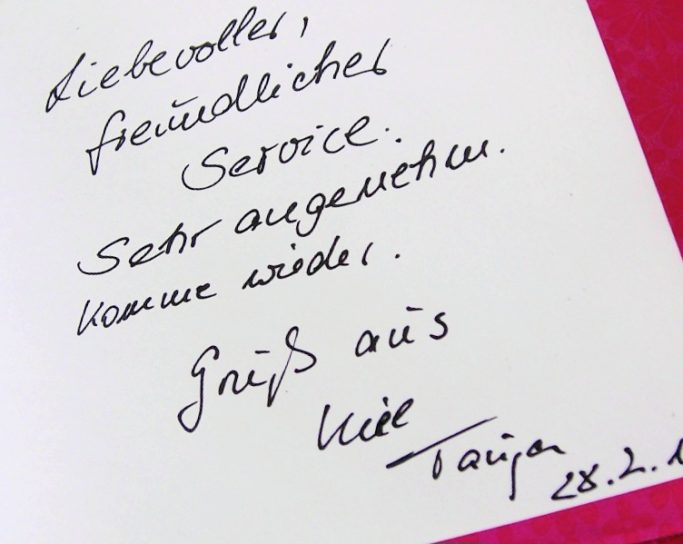 Liebevoller,
freundlicher
Service.
Sehr angenehm.
Komme wieder.
Gruß aus
Kiel
28.2.1